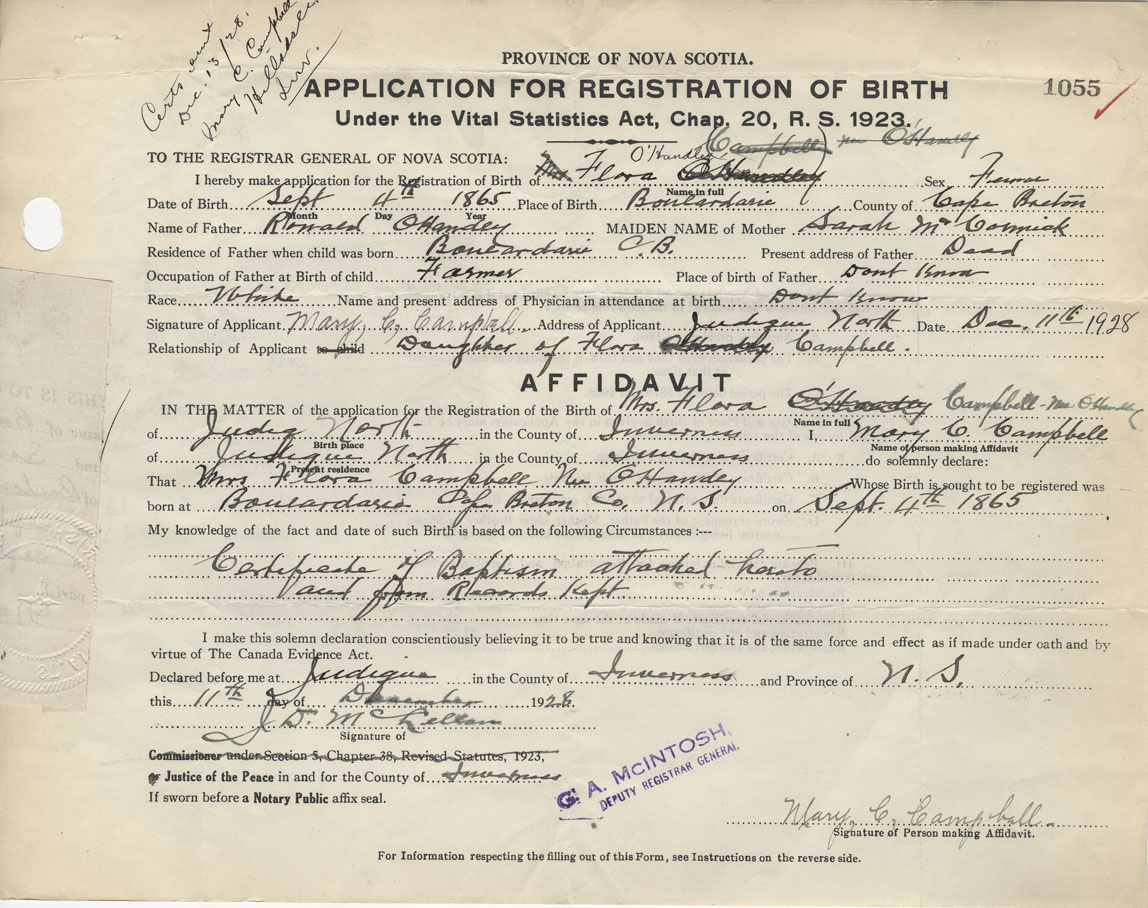 Certs sent
Dec. 13/28.
Mary C. Campbell
Hillsdale
Inv.
PROVINCE OF NOVA SCOTIA.
APPLICATION FOR REGISTRATION OF BIRTH
1055
Under the Vital Statistics Act, Chap. 20, R. S. 1923.
(Campbell) nee O'Handly
TO THE REGISTRAR GENERAL OF NOVA SCOTIA:
O'Handley
I hereby make application for the Registration of Birth of Mrs Flora O'Handley Sex Female
Name in full
Date of Birth Sept 4th 1865 Place of Birth Boulardarie County of Cape Breton
Month Day Year
Name of Father Ronald O'Handley MAIDEN NAME of Mother Sarah McCormick
Residence of Father when child was born Boulardarie C.B. Present address of Father Dead
Occupation of Father at Birth of child Farmer Place of birth of Father Dont Know
Race White Name and present address of Physician in attendance at birth Dont Know
Signature of Applicant Mary C. Campbell Address of Applicant Judique North Date Dec. 11th 1928
Relationship of Applicant to child Daughter of Flora O'Handly Campbell.
AFFIDAVIT
IN THE MATTER of the application for the Registration of the Birth of Mrs. Flora O'Handley Campbell - Nee O'Handley
Name in full
of Judiq North in the County of Inverness I, Mary C. Campbell
Birth place Name of person making Affidavit
of Judique North in the County of Inverness do solemnly declare:
Present residence
That Mrs Flora Campbell Nee O'Handey Whose Birth is sought to be registered was
born at Boulardarie Cape Breton Co. N. S. on Sept. 4th 1865
My knowledge of the fact and date of such Birth is based on the following Circumstances :—
Certificate of Baptism attached hereto
and from Records Kept
I make this solemn declaration conscientiously believing it to be true and knowing that it is of the same force and effect as if made under oath and by
virtue of The Canada Evidence Act.
Declared before me at Judique in the County of Inverness and Province of N. S.
this 11th day of December 1928.
J. D. McLellan
Signature of
Commissioner under Section 5, Chapter 38, Revised Statutes, 1923,
or Justice of the Peace in and for the County of Inverness
If sworn before a Notary Public affix seal.
G. A. McINTOSH,
DEPUTY REGISTRAR GENERAL.
Mary. C. Campbell.
Signature of Person making Affidavit.
For Information respecting the filling out of this Form, see Instructions on the reverse side.